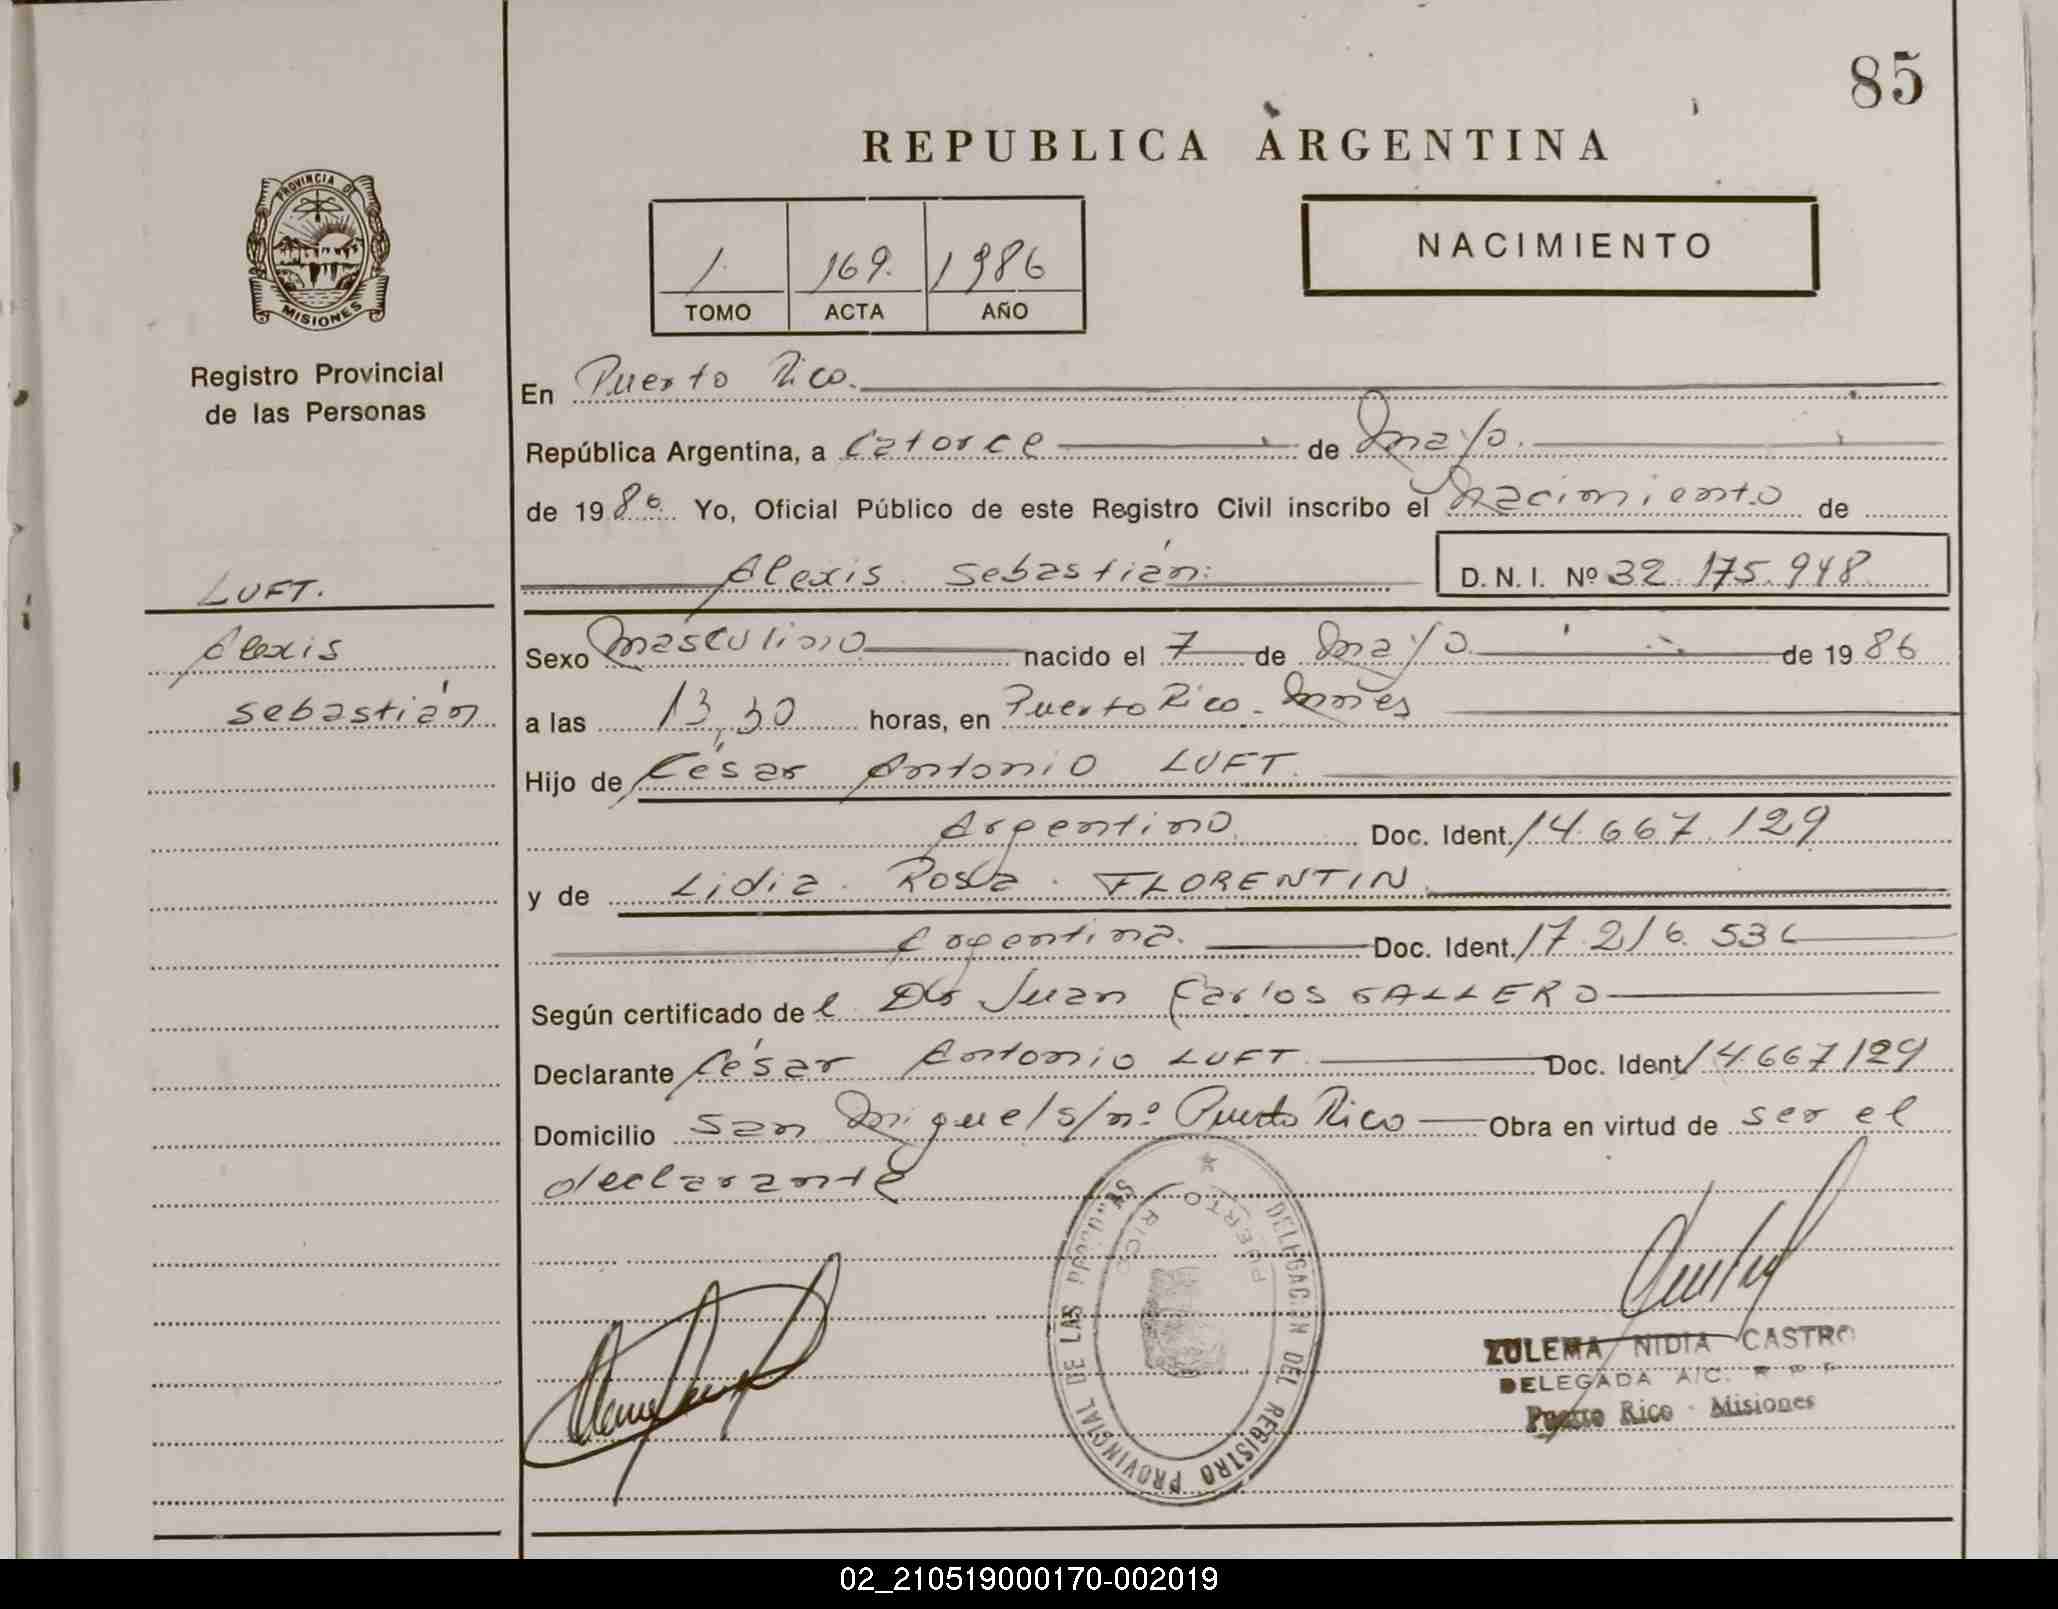 85
REPUBLICA ARGENTINA
PROVINCIA DE
MISIONES
Registro Provincial
de las Personas
1. 169. 1986
TOMO ACTA AÑO
NACIMIENTO
En Puerto Rico.
República Argentina, a Catorce de mayo.
de 1986. Yo, Oficial Público de este Registro Civil inscribo el nacimiento de
Alexis Sebastián.
D. N. I. Nº 32.175.948
LUFT.
Alexis
Sebastián
Sexo masculino nacido el 7 de mayo de 1986
a las 13,30 horas, en Puerto Rico - Mnes
Hijo de César Antonio LUFT.
Argentino. Doc. Ident. 14.667.129
y de Lidia Rosa FLORENTIN.
Argentina. Doc. Ident. 17.216.536
Según certificado del Dr Juan Carlos GALLERO
Declarante César Antonio LUFT. Doc. Ident. 14.667129
Domicilio San Miguel s/nº Puerto Rico Obra en virtud de ser el
declarante
DELEGACION DEL REGISTRO PROVINCIAL DE LAS PERSONAS
PUERTO RICO
ZULEMA NIDIA CASTRO
DELEGADA A/C. R P P
Puerto Rico - Misiones
02_210519000170-002019